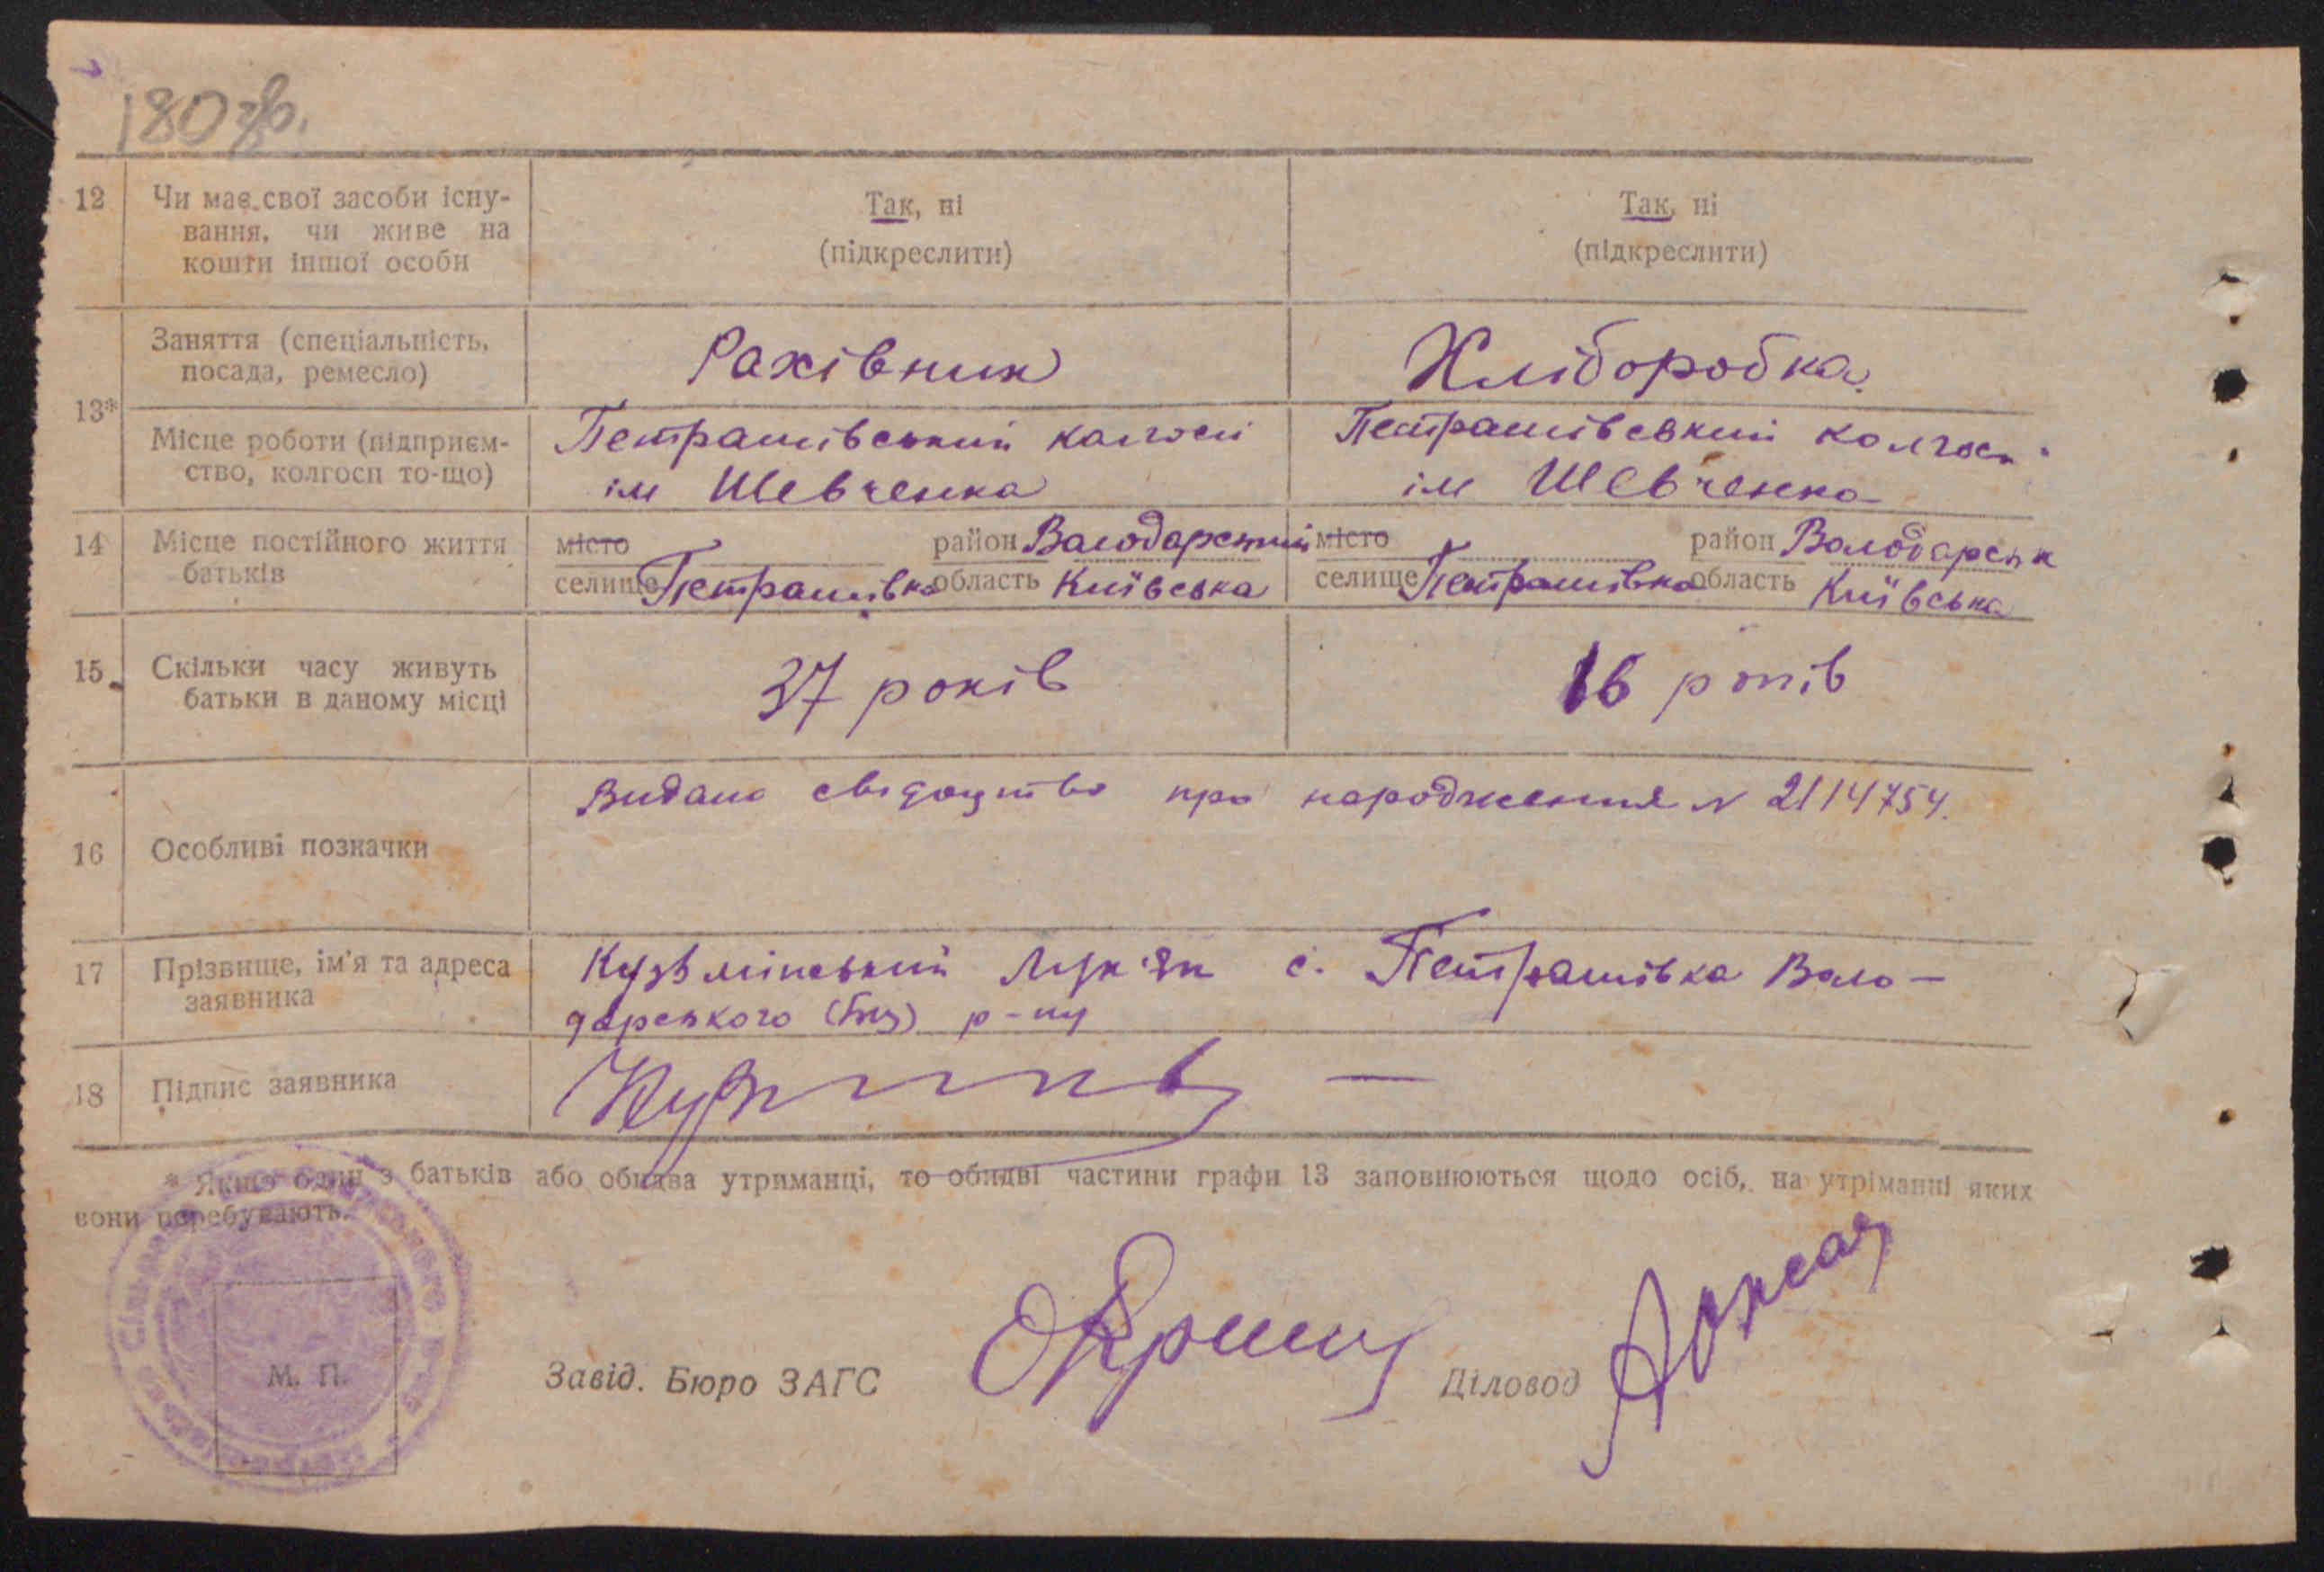 180 зв.
12 Чи має свої засоби існу-
вання, чи живе на
кошти іншої особи
Так, ні
(підкреслити)
Так, ні
(підкреслити)
13*
Заняття (спеціальність,
посада, ремесло)
Рахівник
Хліборобка
Місце роботи (підприєм-
ство, колгосп то-що)
Петрашівський колгосп
ім Шевченка
Петрашівський колгосп
ім Шевченка
14 Місце постійного життя
батьків
місто район Володарський
селище Петрашівка область Київська
місто район Володарськ
селище Петрашівка область Київська
15 Скільки часу живуть
батьки в даному місці
37 років
16 років
16 Особливі позначки
Видано свідоцтво про народження N 2114754.
17 Прізвище, ім'я та адреса
заявника
Кузьмінський Лук'ян с. Петрашівка Воло-
дарського (Бц) р-ну
18 Підпис заявника
* Якщо один з батьків або обидва утриманці, то обидві частини графи 13 заповнюються щодо осіб, на утріманні яких
вони перебувають.
М. П.
Завід. Бюро ЗАГС
Діловод